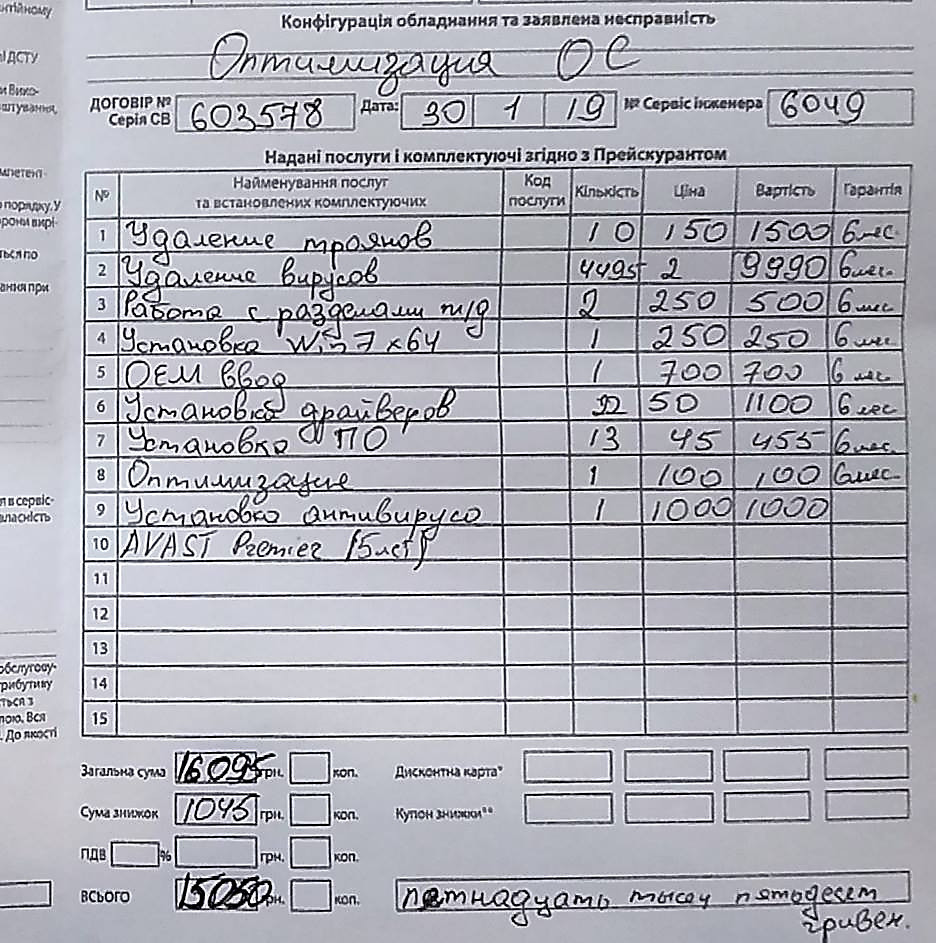 нтійному
Конфігурація обладнання та заявлена несправність
І ДСТУ
Оптимизация ОС
и Вико-
штування,
ДОГОВІР № Серія СВ 603578 Дата: 30 1 19 № Сервіс інженера 6049
Надані послуги і комплектуючі згідно з Прейскурантом
мпетент-
№ Найменування послуг та встановлених комплектуючих Код послуги Кількість Ціна Вартість Гарантія
порядку. У
орони вирі-
1 Удаление троянов 10 150 1500 6 мес.
ться по
2 Удаление вирусов 4495 2 9990 6 мес.
ання при
3 Работа с разделами ж/д 2 250 500 6 мес
4 Установка Win 7 x64 1 250 250 6 мес
5 OEM ввод 1 700 700 6 мес.
6 Установка драйверов 22 50 1100 6 мес
7 Установка ПО 13 45 455 6 мес.
8 Оптимизация 1 100 100 6 мес.
я в сервіс-
власність
9 Установка антивируса 1 1000 1000
10 AVAST Premier (5 лет)
11
12
13
14
15
обслугову-
рибутиву
ться з
лою. Вся
. До якості
Загальна сума 16095 грн. коп. Дисконтна карта*
Сума знижок 1045 грн. коп. Купон знижки**
ПДВ % грн. коп.
ВСЬОГО 15050 грн. коп. пятнадцать тысяч пятьдесят
гривен.